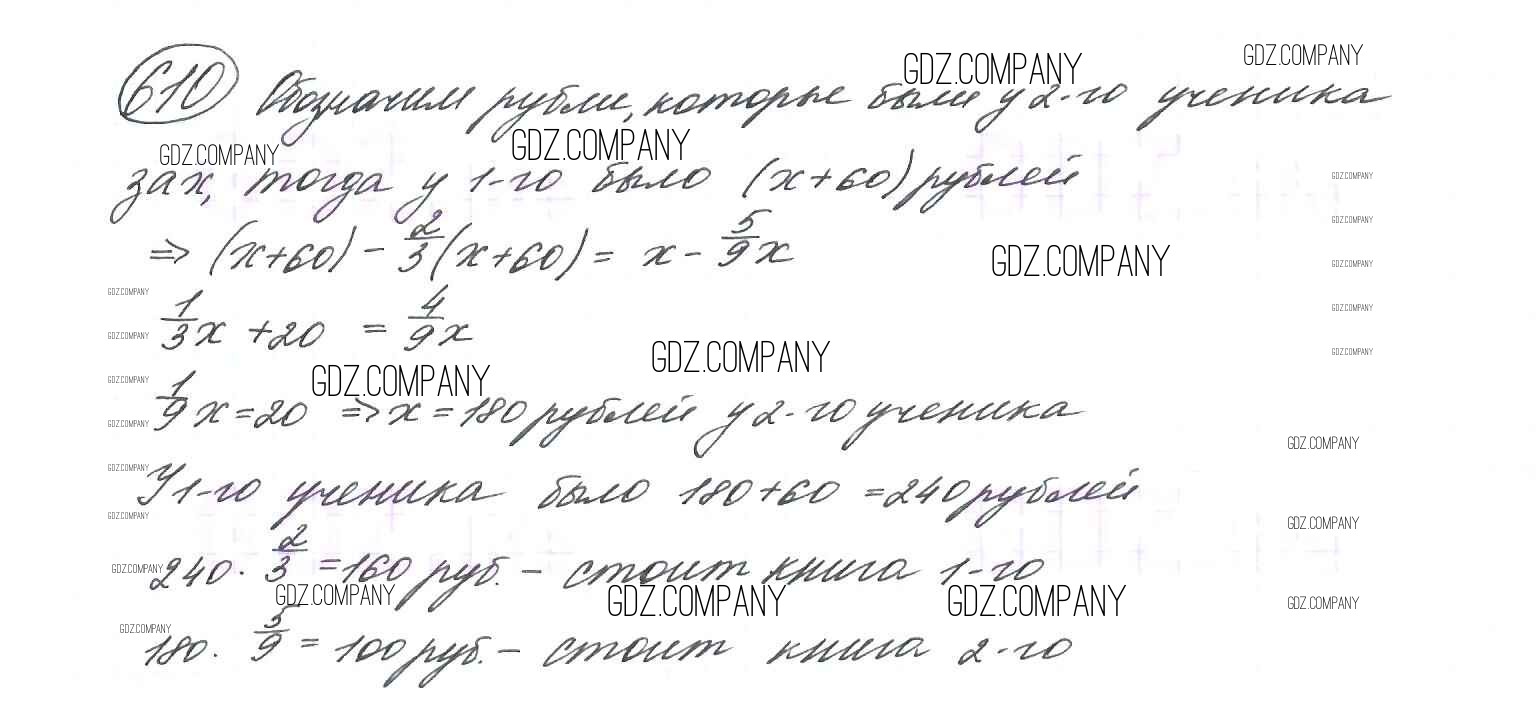 610 Обозначим рубли, которые были у 2-го ученика
GDZ.COMPANY GDZ.COMPANY
GDZ.COMPANY GDZ.COMPANY
за x, тогда у 1-го было (x+60) рублей
GDZ.COMPANY
GDZ.COMPANY
⇒ (x+60) - 2/3 (x+60) = x - 5/9 x
GDZ.COMPANY GDZ.COMPANY
GDZ.COMPANY
1/3 x + 20 = 4/9 x
GDZ.COMPANY
GDZ.COMPANY
GDZ.COMPANY GDZ.COMPANY
GDZ.COMPANY GDZ.COMPANY
1/9 x = 20 ⇒ x = 180 рублей у 2-го ученика
GDZ.COMPANY
GDZ.COMPANY
GDZ.COMPANY
У 1-го ученика было 180+60 = 240 рублей
GDZ.COMPANY GDZ.COMPANY
240 · 2/3 = 160 руб. - стоит книга 1-го
GDZ.COMPANY
GDZ.COMPANY GDZ.COMPANY GDZ.COMPANY GDZ.COMPANY
GDZ.COMPANY
180 · 5/9 = 100 руб. - стоит книга 2-го